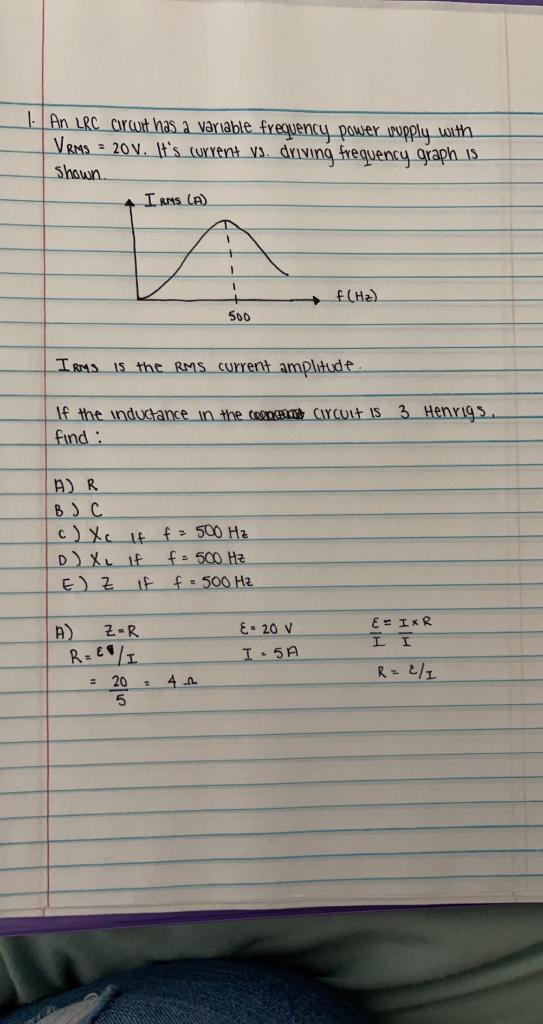 1. An LRC circuit has a variable frequency power supply with
VRMS = 20V. It's current vs. driving frequency graph is
shown.
I RMS (A)
f(Hz)
500
IRMS is the RMS current amplitude.
If the inductance in the circuit is 3 Henrigs,
find :
A) R
B) C
C) Xc if f = 500 Hz
D) XL if f = 500 Hz
E) Z if f = 500 Hz
A) Z=R ε= 20 V ε = I×R
I I
R= ε/I I = 5A
R= ε/I
= 20/5 = 4 Ω